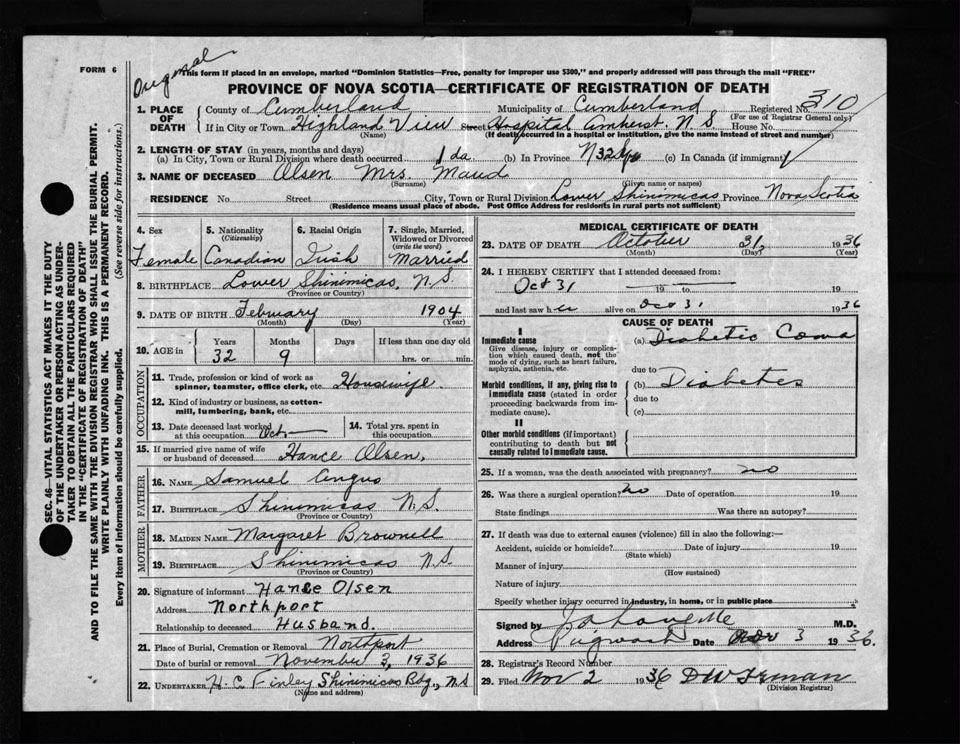 Original
FORM 6
This form if placed in an envelope, marked "Dominion Statistics—Free, penalty for improper use $300," and properly addressed will pass through the mail "FREE"
PROVINCE OF NOVA SCOTIA—CERTIFICATE OF REGISTRATION OF DEATH
1. PLACE OF DEATH County of Cumberland Municipality of Cumberland Registered No. 310
(For use of Registrar General only)
If in City or Town Highland View Street Hospital Amherst. N.S. House No.
(Name) (If death occurred in a hospital or institution, give the name instead of street and number)
2. LENGTH OF STAY (in years, months and days)
(a) In City, Town or Rural Division where death occurred 1 da. (b) In Province (c) In Canada (if immigrant)
3. NAME OF DECEASED Olsen Mrs. Maud
(Surname) (Given name or names)
RESIDENCE No. Street City, Town or Rural Division Lower Shinimicas Province Nova Scotia
(Residence means usual place of abode. Post Office Address for residents in rural parts not sufficient)
4. Sex 5. Nationality (Citizenship) 6. Racial Origin 7. Single, Married, Widowed or Divorced (write the word)
Female Canadian Irish Married
8. BIRTHPLACE Lower Shinimicas, N.S.
(Province or Country)
9. DATE OF BIRTH February 1904
(Month) (Day) (Year)
10. AGE in Years Months Days If less than one day old
32 9 hrs. or min.
OCCUPATION
11. Trade, profession or kind of work as spinner, teamster, office clerk, etc. Housewife
12. Kind of industry or business, as cotton-mill, lumbering, bank, etc.
13. Date deceased last worked at this occupation Oct 14. Total yrs. spent in this occupation
15. If married give name of wife or husband of deceased Hance Olsen,
FATHER
16. NAME Samuel Angus
17. BIRTHPLACE Shinimicas N.S.
(Province or Country)
MOTHER
18. MAIDEN NAME Margaret Brownell
19. BIRTHPLACE Shinimicas N.S.
(Province or Country)
20. Signature of informant Hance Olsen
Address Northport
Relationship to deceased Husband.
21. Place of Burial, Cremation or Removal Northport
Date of burial or removal November 3, 1936
22. UNDERTAKER H. C. Finley Shinimicas Bdg., N.S
(Name and address)
MEDICAL CERTIFICATE OF DEATH
23. DATE OF DEATH October 31, 1936
(Month) (Day) (Year)
24. I HEREBY CERTIFY that I attended deceased from:
Oct 31 19 to 19
and last saw her alive on Oct 31 1936
CAUSE OF DEATH
I
Immediate cause
Give disease, injury or complication which caused death, not the mode of dying, such as heart failure, asphyxia, asthenia, etc.
(a) Diabetic Coma
due to
Morbid conditions, if any, giving rise to immediate cause (stated in order proceeding backwards from immediate cause).
(b) Diabetes
due to
(c)
II
Other morbid conditions (if important) contributing to death but not causally related to immediate cause.
25. If a woman, was the death associated with pregnancy? no
26. Was there a surgical operation? no Date of operation 19
State findings Was there an autopsy?
27. If death was due to external causes (violence) fill in also the following:—
Accident, suicide or homicide? Date of injury 19
(State which)
Manner of injury
(How sustained)
Nature of injury
Specify whether injury occurred in industry, in home, or in public place
Signed by M.D.
Address Pugwash Date Nov 3 1936.
28. Registrar's Record Number
29. Filed Nov 2 1936
(Division Registrar)
SEC. 46—VITAL STATISTICS ACT MAKES IT THE DUTY
OF THE UNDERTAKER OR PERSON ACTING AS UNDER-
TAKER TO OBTAIN ALL THE PARTICULARS REQUIRED
IN THE "CERTIFICATE OF REGISTRATION OF DEATH"
AND TO FILE THE SAME WITH THE DIVISION REGISTRAR WHO SHALL ISSUE THE BURIAL PERMIT.
WRITE PLAINLY WITH UNFADING INK. THIS IS A PERMANENT RECORD.
Every item of information should be carefully supplied. (See reverse side for instructions.)